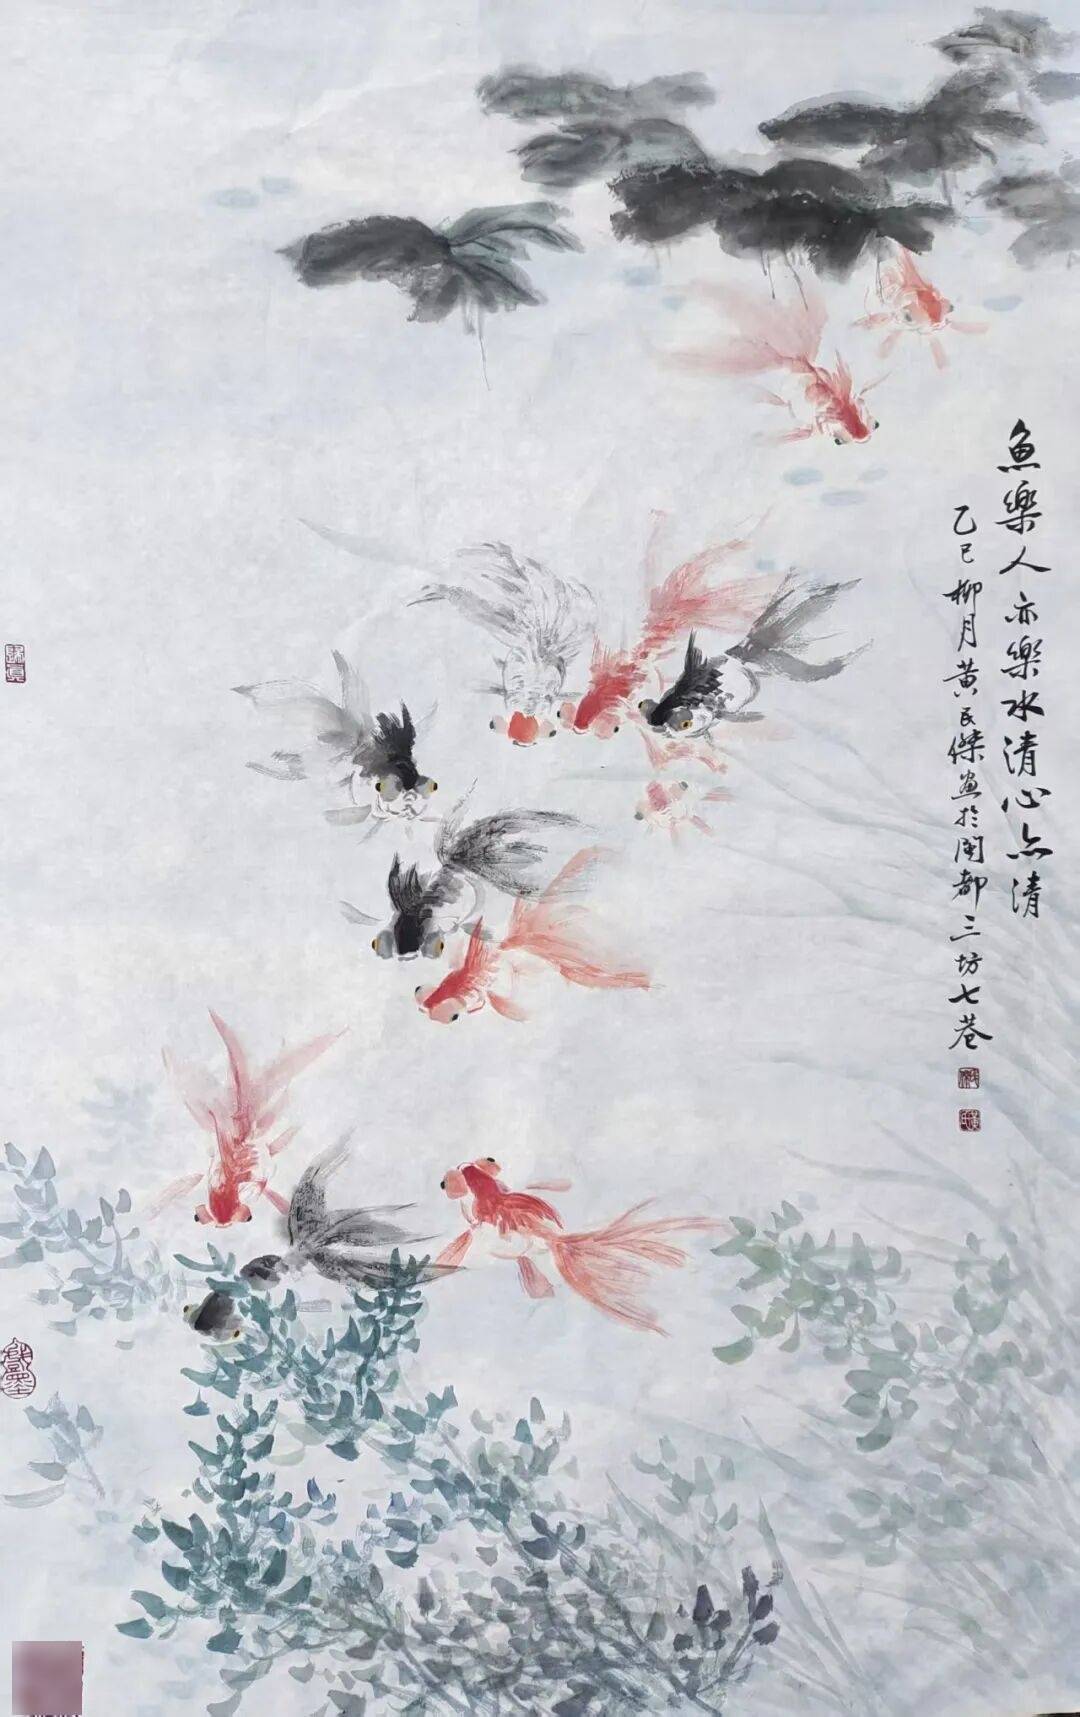 魚樂人亦樂水清心亦清
乙巳柳月黃民傑画於閩都三坊七巷